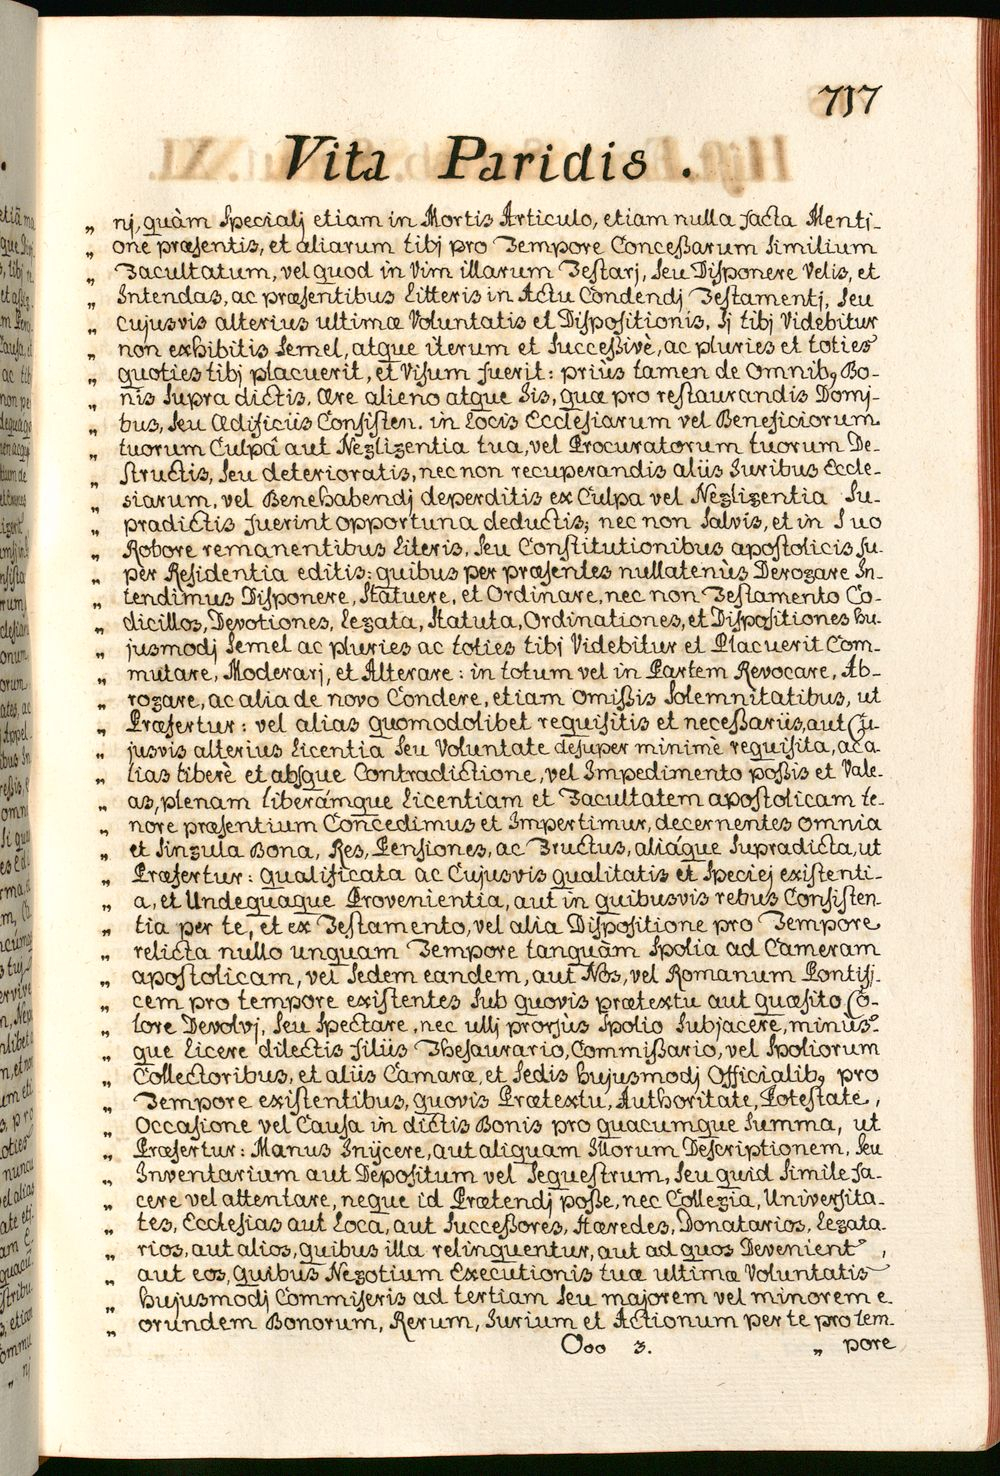 717
Vita Paridis.
„ nj, quàm Specialj etiam in Mortis Articulo, etiam nulla facta Menti-
„ one præsentis, et aliarum tibj pro Tempore Conceßarum Similium
„ Facultatum, vel quod in Vim illarum Testarj, Seu Disponere Velis, et
„ Intendas, ac præsentibus Litteris in Actu Condendj Testamentj, Seu
„ cujusvis alterius ultimæ Voluntatis et Dispositionis, Sj tibj Videbitur
„ non exhibitis Semel, atque iterum et Succeßivè, ac pluries et toties
„ quoties tibj placuerit, et Visum fuerit: priùs tamen de Omnibꝯ Bo-
„ nis Supra dictis, Ære alieno atque Iis, quæ pro restaurandis Domj-
„ bus, Seu Ædificiis Consisten. in Locis Ecclesiarum vel Beneficiorum
„ tuorum Culpâ aut Negligentia tua, vel Procuratorum tuorum De-
„ structis, Seu deterioratis, nec non recuperandis aliis Iuribus Eccle-
„ siarum, vel Benehabendj deperditis ex Culpa vel Negligentia Su-
„ pradictis fuerint opportuna deductis; nec non Salvis, et in Suo
„ Robore remanentibus Literis, Seu Constitutionibus apostolicis Su-
„ per Residentia editis: quibus per præsentes nullatenùs Derogare In-
„ tendimus Disponere, Statuere, et Ordinare, nec non Testamento Co-
„ dicillos, Devotiones, Legata, Statuta, Ordinationes, et Dispositiones hu-
„ jusmodj Semel ac pluries ac toties tibj Videbitur et Placuerit Com-
„ mutare, Moderarj, et Alterare: in totum vel in Partem Revocare, Ab-
„ rogare, ac alia de novo Condere, etiam Omißis Solemnitatibus, ut
„ Præfertur: vel alias quomodolibet requisitis et neceßariis, aut Cu-
„ jusvis alterius Licentia Seu Voluntate desuper minimè requisita, ac a-
„ lias liberè et absque Contradictione, vel Impedimento poßis et Vale-
„ as, plenam liberámque Licentiam et Facultatem apostolicam te-
„ nore præsentium Concedimus et Impertimur, decernentes omnia
„ et Singula Bona, Res, Pensiones, ac Fructus, aliáque Supradicta, ut
„ Præfertur: qualificata ac Cujusvis qualitatis et Speciej existenti-
„ a, et Undequaque Provenientia, aut in quibusvis rebus Consisten-
„ tia per te, et ex Testamento, vel alia Dispositione pro Tempore
„ relicta nullo unquam Tempore tanquàm Spolia ad Cameram
„ apostolicam, vel Sedem eandem, aut Nos, vel Romanum Pontifi-
„ cem pro tempore existentes Sub quovis prætextu aut quæsito Co-
„ lore Devolvj, Seu Spectare, nec ullj prorsùs Spolio Subjacere, minús-
„ que Licere dilectis Filiis Thesaurario, Commißario, vel Spoliorum
„ Collectoribus, et aliis Camaræ, et Sedis hujusmodj Officialibꝯ pro
„ Tempore existentibus, quovis Prætextu, Authoritate, Potestate,
„ Occasione vel Causa in dictis Bonis pro quacumque Summa, ut
„ Præfertur: Manus Inijcere, aut aliquam Illorum Descriptionem, Seu
„ Inventarium aut Depositum vel Sequestrum, Seu quid Simile fa-
„ cere vel attentare, neque id Prætendj poße, nec Collegia, Universita-
„ tes, Ecclesias aut Loca, aut Succeßores, Hæredes, Donatarios, Legata-
„ rios, aut alios, quibus illa relinquentur, aut ad quos Devenient,
„ aut eos, quibus Negotium Executionis tuæ ultimæ Voluntatis
„ hujusmodj Commiseris ad tertiam Seu majorem vel minorem e-
„ orundem Bonorum, Rerum, Iurium et Actionum per te pro tem-
Ooo 3. „ pore